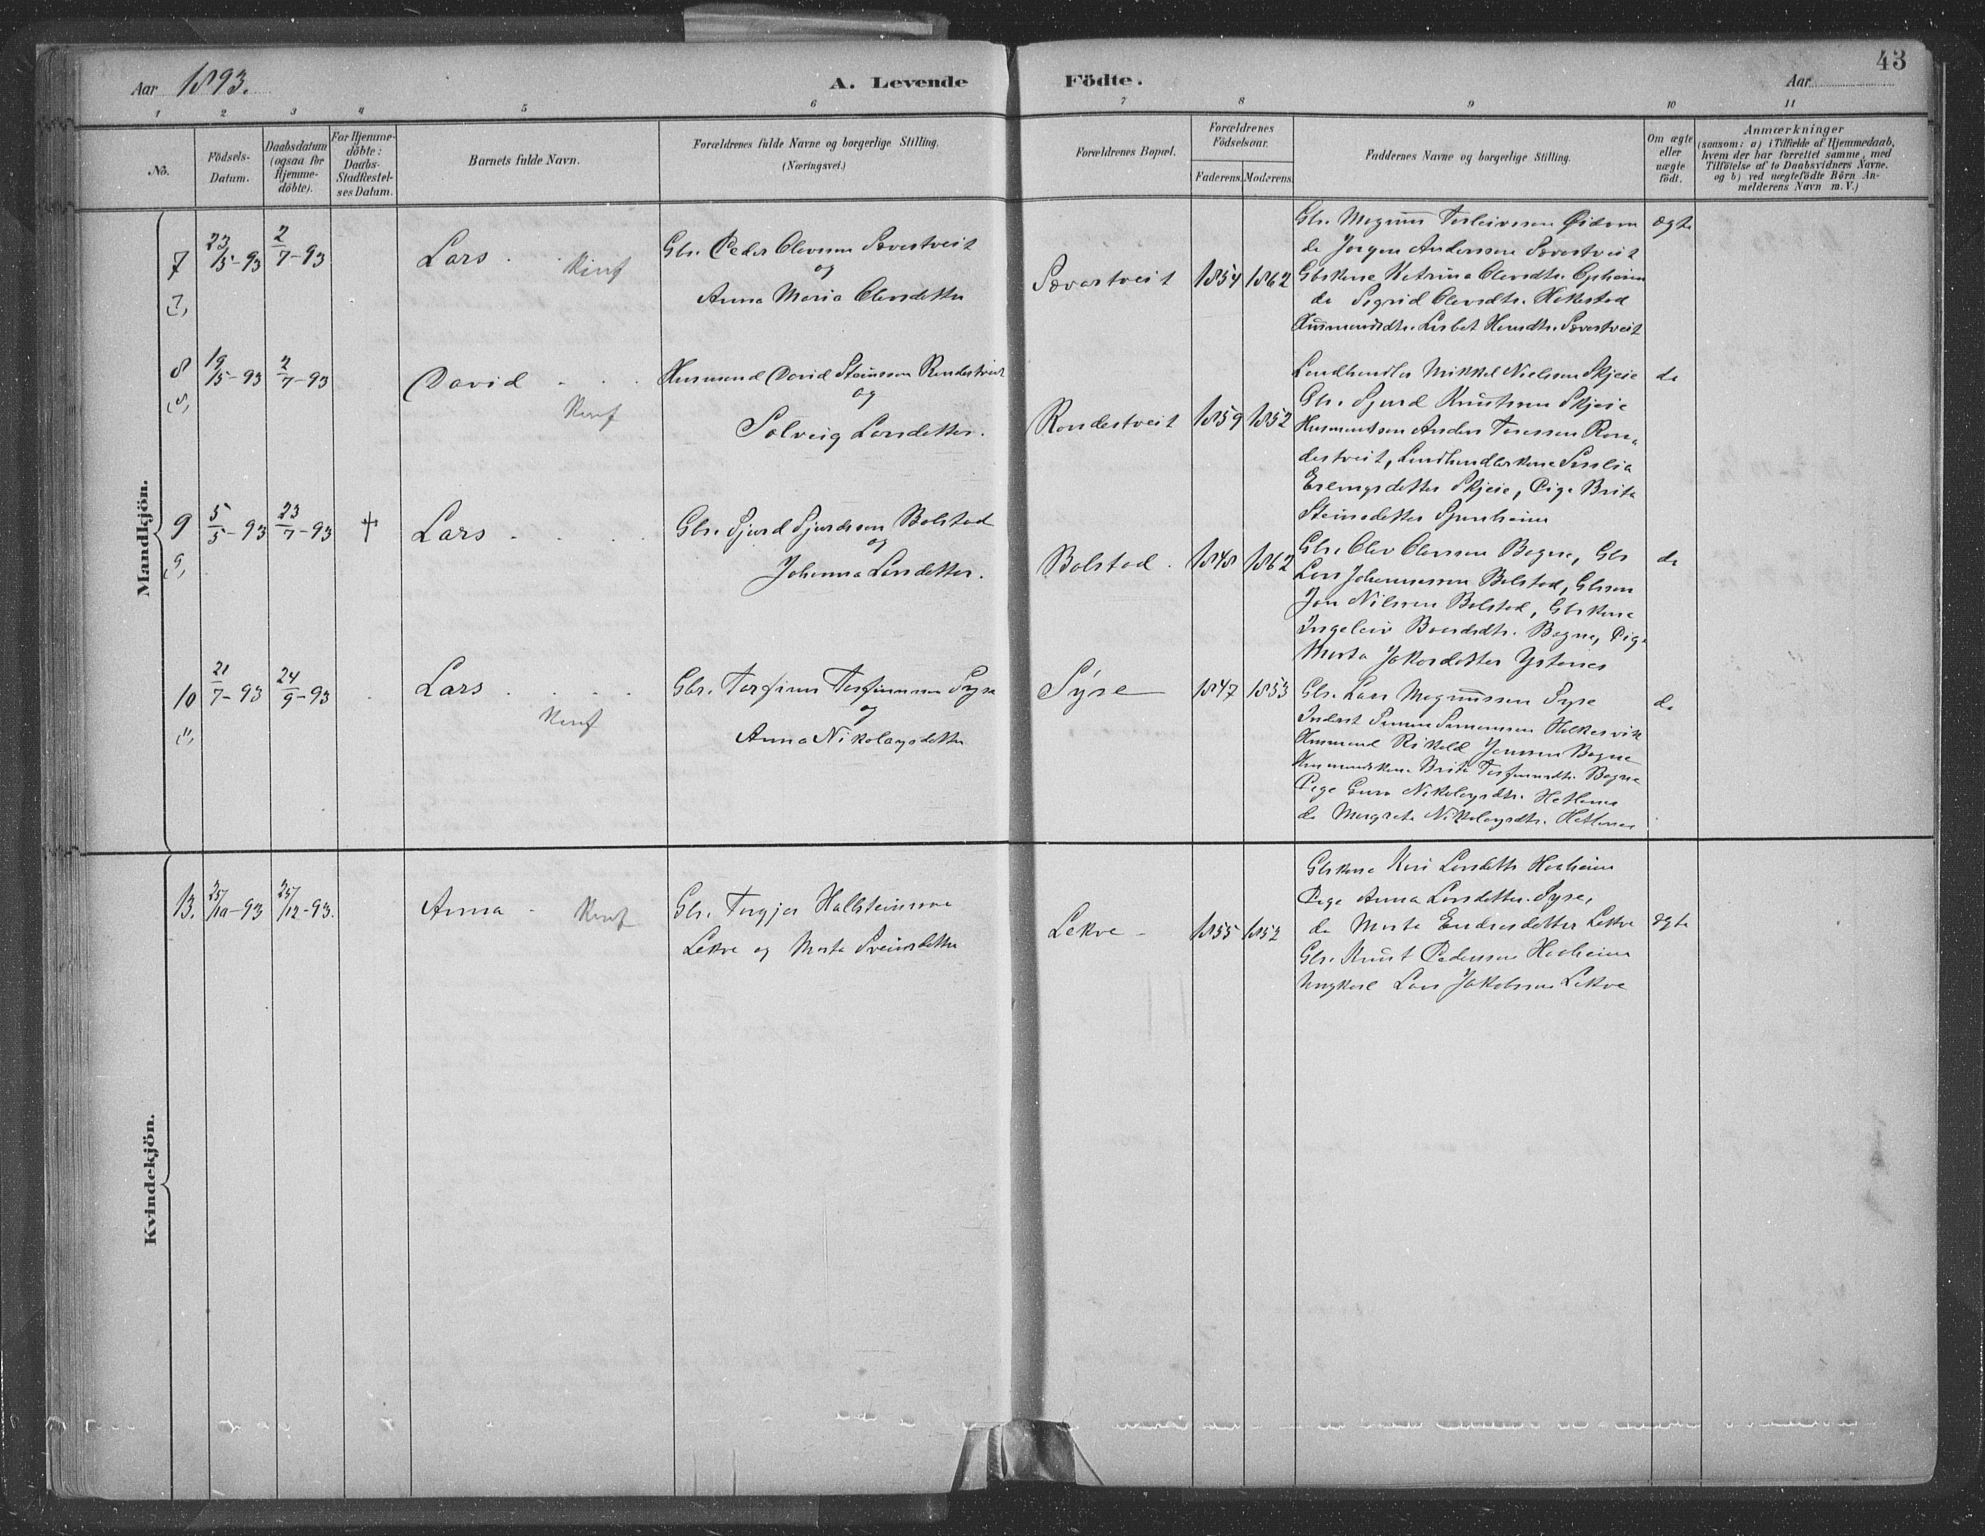 43
Aar 1893.
A. Levende Födte.
Aar
1 2 3 4 5 6 7 8 9 10 11
No.
Födsels-
Datum.
Daabsdatum
(ogsaa for
Hjemme-
döbte).
For Hjemme-
döbte:
Daabs-
Stadfæstel-
ses Datum.
Barnets fulde Navn.
Forældrenes fulde Navne og borgerlige Stilling.
(Næringsvei.)
Forældrenes Bopæl.
Forældrenes
Födselsaar.
Faderens. Moderens.
Faddernes Navne og borgerlige Stilling.
Om ægte
eller
uægte
födt.
Anmærkninger
(saasom: a) i Tilfælde af Hjemmedaab,
hvem der har forrettet samme, med
Tilföielse af to Daabsvidners Navne.
og b) ved uægtefödte Börn An-
melderens Navn m. V.)
Mandkjön.
7 23/5-93 2/7-93 Lars Konf
Gbr. Peder Olavsson Sævartveit
og
Anna Maria Olavsdotter
Sævartveit 1854 1862
Gbr. Magnus Torleivsson
do Jørgen Anderssen Sævartveit
Gbrkone Katrina Olavsdtr. Opheim
do Sigrid Olavsdtr. Hakestad
Lisbet Sævartveit
ægte
8 19/5-93 2/7-93 David Konf
Husmand David Steinsson Rondestveit
og
Solveig Larsdotter.
Rondestveit 1859 1852
Landhandler Mikkel Nielsen Skjeie
Gbr. Sjurd Knutson Skjeie
Husmandsson Anders Ron-
destveit, Landhandlerkone
Erlingsdotter Skjeie, Pige Brita
Steinsdotter
do
9 5/5-93 23/7-93 † Lars
Gbr. Sjurd Sjurdsson Bolstad
og
Johanna Larsdotter.
Bolstad. 1848 1862
Gbr. Olav Olavsson Bagne, Gbr
Lars Johannesson Bolstad, Gbrson
Jon Nilsson Bolstad, Gbrkone
Ingeleiv Baardsdtr. Bagne, Pige
Marta Jakobsdotter Ystenes
do
10 21/7-93 24/9-93 Lars Konf
Gbr. Torfinn Torfinnsson Syse
og
Anna Nikolaysdotter
Syse 1847 1853
Gbr. Lars Magnussen Syse
Inderst Simon Simonsson
Husmand Jonsson Bagne
Husmandskone Brita Torfinnsdtr. Bagne
Pige Guro Nikolaysdtr. Hetlenes
do Margreta Nikolaysdtr. Hetlenes
do
Kvindekjön.
13. 25/10-93 25/12-93. Anna Konf
Gbr. Torgjer Hallsteinsson
Lekve og Marta Sveinsdotter
Lekve 1855 1852
Gbrkone Kari Larsdotter Haaheim
Pige Anna Larsdotter Syse,
do Marta Endresdotter Lekve
Gbr. Knut Pedersson Haaheim
Ungkarl Lars Jakobsson Lekve
ægte